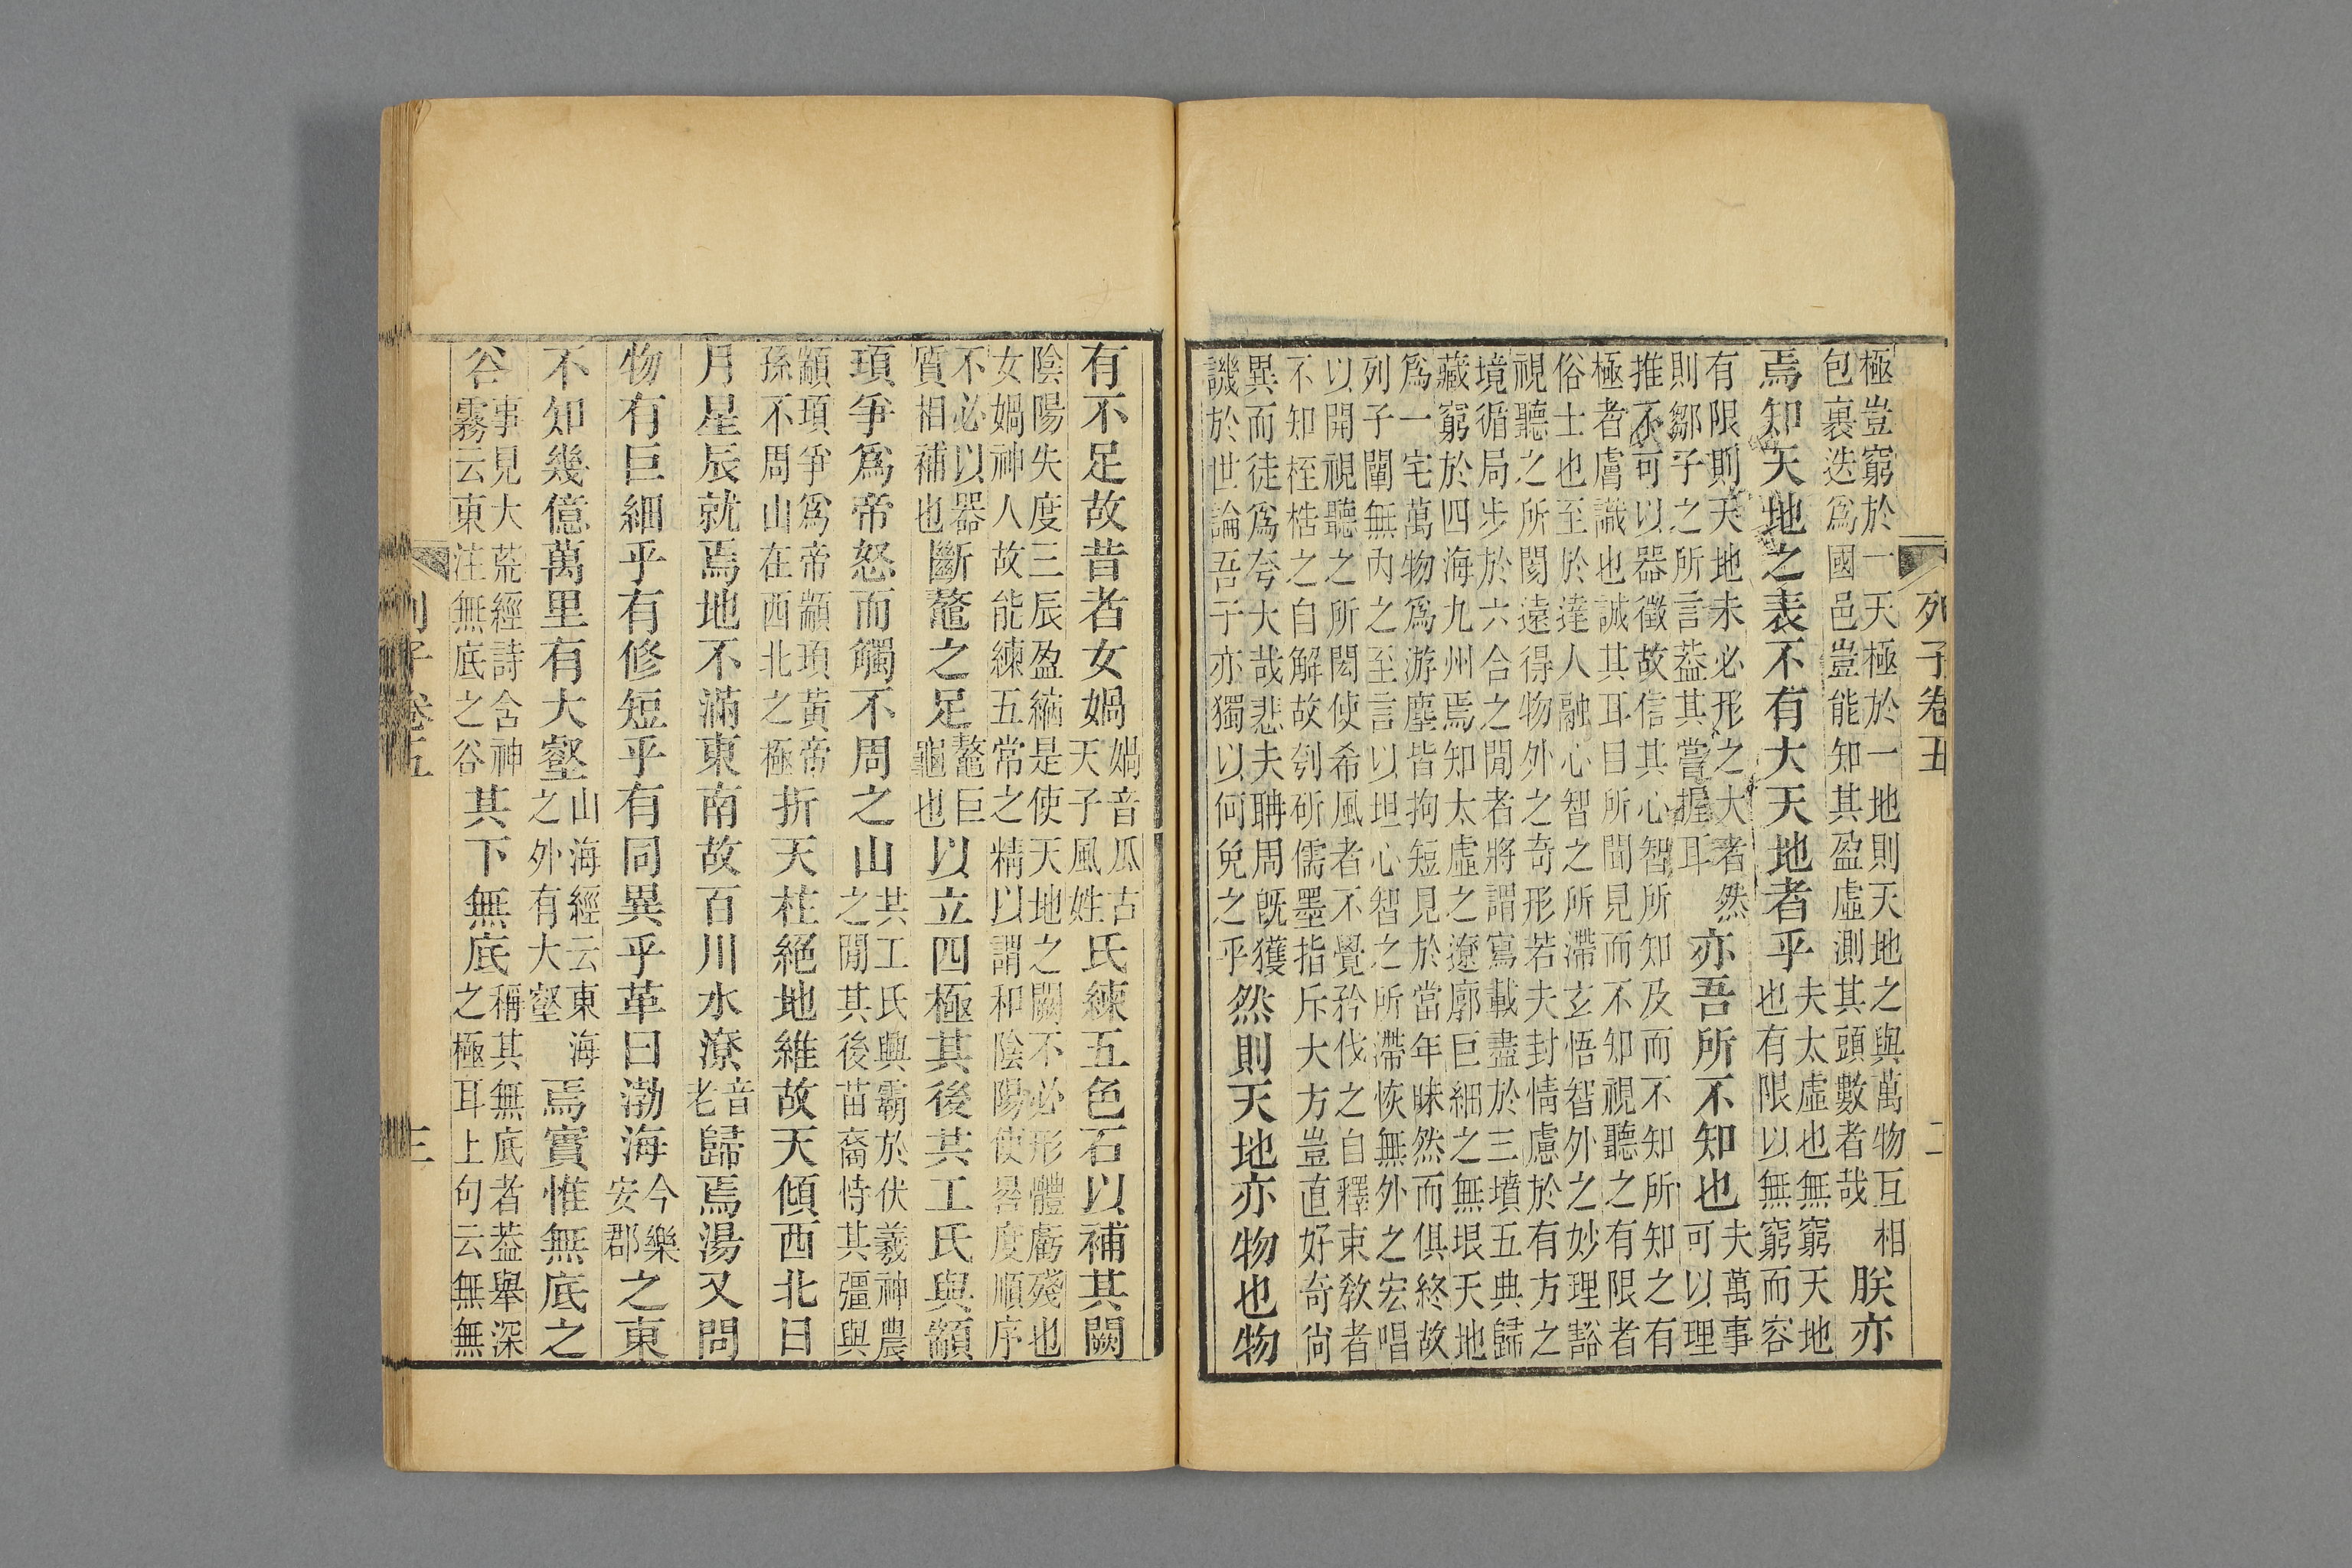 列子卷五　二
極豈窮於一天極於一地則天地之與萬物互相
包裹迭爲國邑豈能知其盈虛測其頭數者哉　朕亦
焉知天地之表不有大天地者乎　夫太虛也無窮天地
也有限以無窮而容
有限則天地未必形之大者然
則鄒子之所言蓋其嘗握耳　亦吾所不知也　夫萬事
可以理
推不可以器徵故信其心智所知及而不知所知之有
極者膚識也誠其耳目所聞見而不知視聽之有限者
俗士也至於達人融心智之所滯玄悟智外之妙理豁
視聽之所閡遠得物外之奇形若夫封情慮於有方之
境循局步於六合之閒者將謂寫載盡於三墳五典歸
藏窮於四海九州焉知太虛之遼廓巨細之無垠天地
爲一宅萬物爲游塵皆拘短見於當年昧然而俱終故
列子闡無內之至言以坦心智之所滯恢無外之宏唱
以開視聽之所閡使希風者不覺矜伐之自釋束敎者
不知桎梏之自解故刳斫儒墨指斥大方豈直好奇尚
異而徒爲夸大哉悲夫聃周旣獲
譏於世論吾子亦獨以何免之乎　然則天地亦物也物
有不足故昔者女媧　媧音瓜古
天子風姓　氏練五色石以補其闕
陰陽失度三辰盈縮是使天地之闕不必形體虧殘也
女媧神人故能練五常之精以謂和陰陽使晷度順序
不必以器
質相補也　斷鼇之足　鼇巨
龜也　以立四極其後共工氏與顓
頊爭爲帝怒而觸不周之山　共工氏興霸於伏羲神農
之閒其後苗裔恃其彊與
顓頊爭爲帝顓頊黃帝
孫不周山在西北之極　折天柱絕地維故天傾西北日
月星辰就焉地不滿東南故百川水潦　音
老　歸焉湯又問
物有巨細乎有修短乎有同異乎革曰渤海　今樂
安郡　之東
不知幾億萬里有大壑　山海經云東海
之外有大壑　焉實惟無底之
谷　事見大荒經詩含神
霧云東注無底之谷　其下無底　稱其無底者蓋舉深
之極耳上句云無無
列子卷五　三